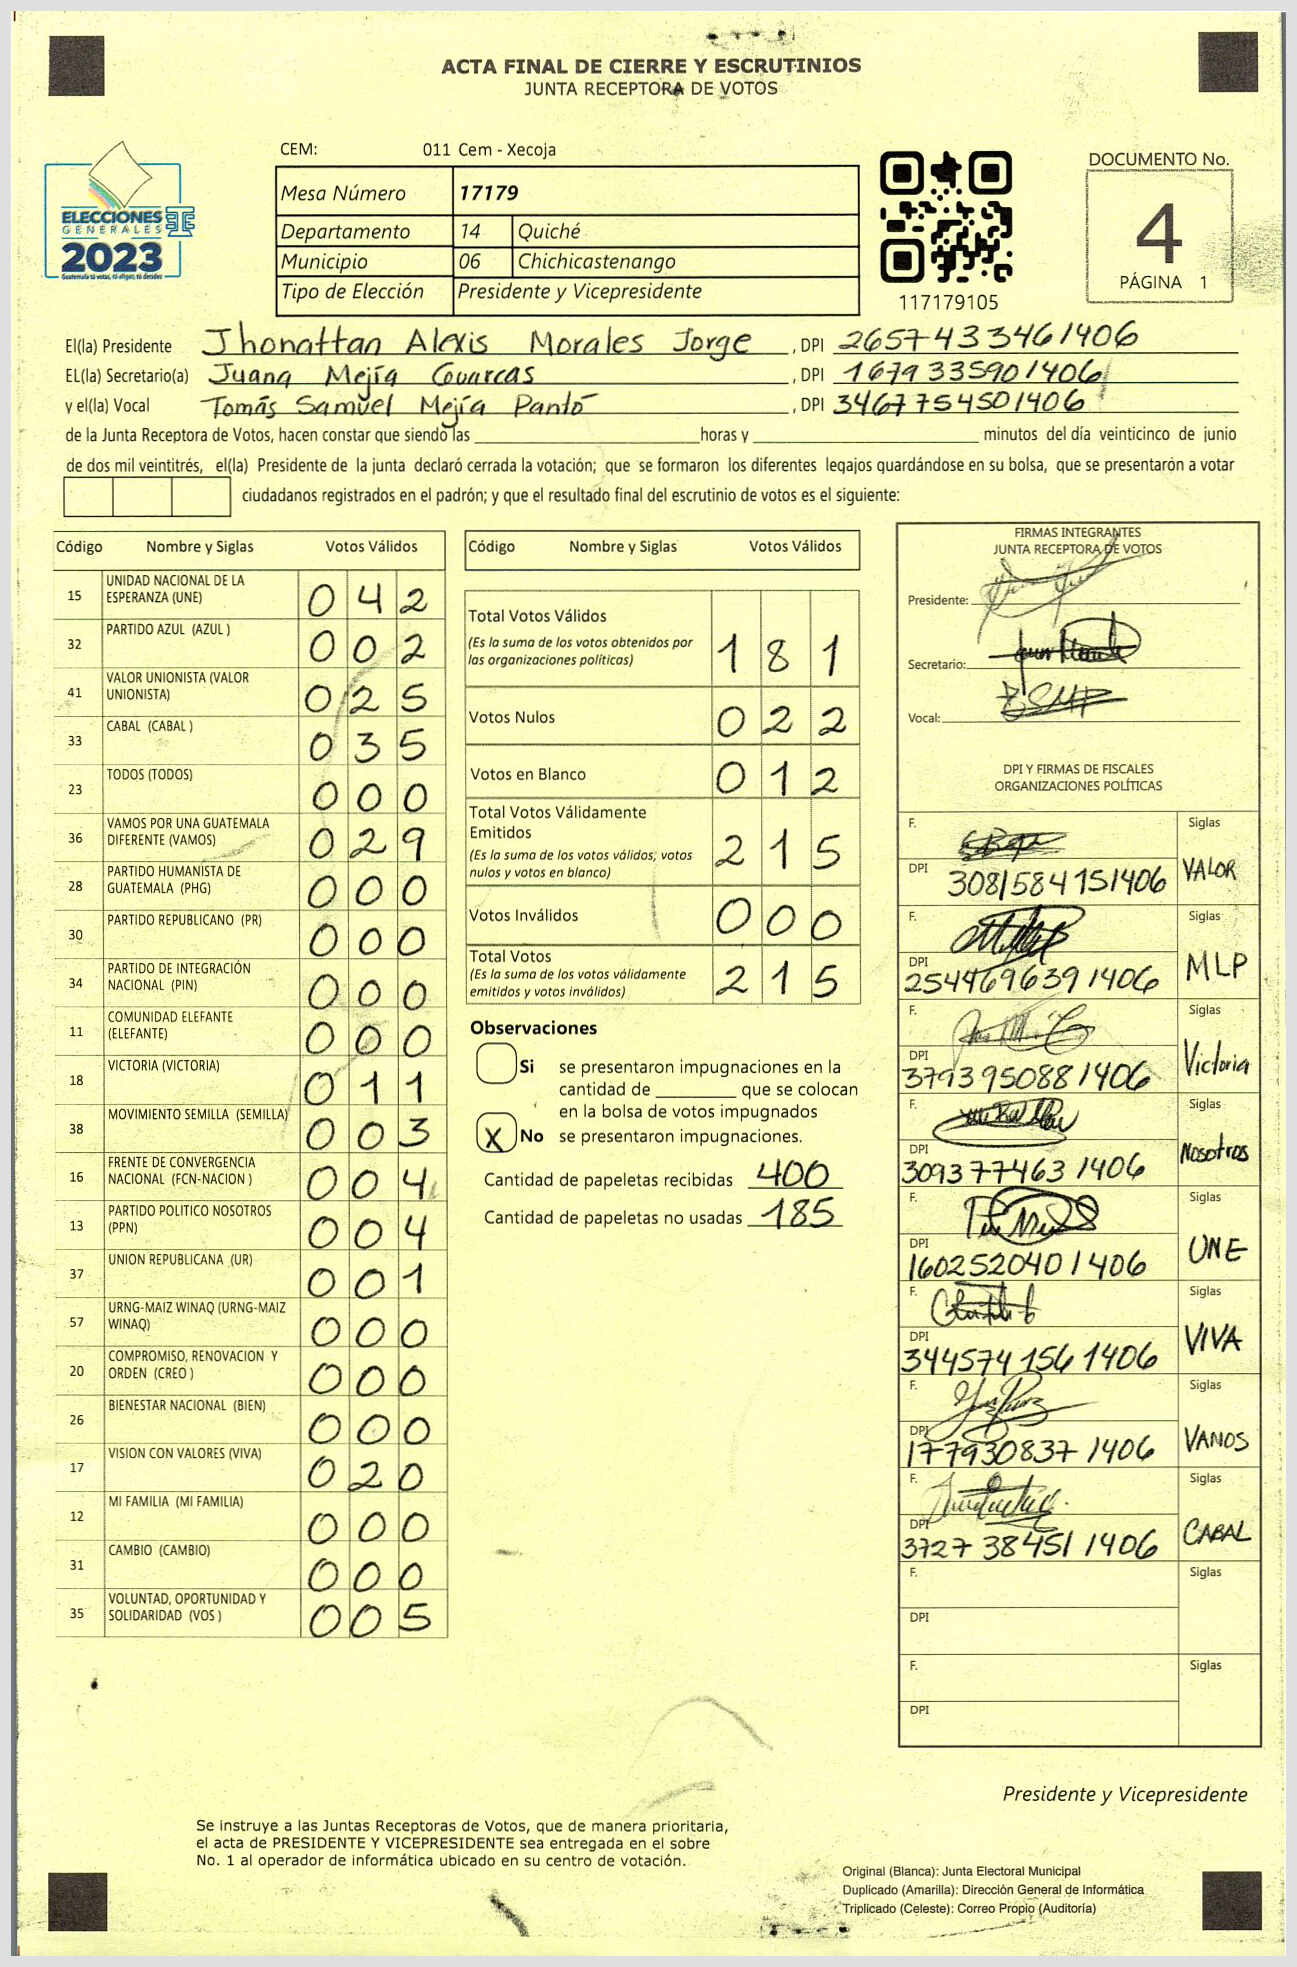 ACTA FINAL DE CIERRE Y ESCRUTINIOS
JUNTA RECEPTORA DE VOTOS
CEM: 011 Cem - Xecoja
Mesa Número 17179
Departamento 14 Quiché
Municipio 06 Chichicastenango
Tipo de Elección Presidente y Vicepresidente
ELECCIONES
GENERALES
2023
Guatemala tú votas, tú eliges, tú decides
117179105
DOCUMENTO No.
4
PÁGINA 1
El(la) Presidente Jhonattan Alexis Morales Jorge , DPI 2657433461406
EL(la) Secretario(a) Juana Mejía Cuarcas , DPI 1679335901406
y el(la) Vocal Tomás Samuel Mejía Pantó , DPI 3467754501406
de la Junta Receptora de Votos, hacen constar que siendo las horas y minutos del día veinticinco de junio
de dos mil veintitrés, el(la) Presidente de la junta declaró cerrada la votación; que se formaron los diferentes legajos guardándose en su bolsa, que se presentarón a votar
ciudadanos registrados en el padrón; y que el resultado final del escrutinio de votos es el siguiente:
Código Nombre y Siglas Votos Válidos
15 UNIDAD NACIONAL DE LA ESPERANZA (UNE) 042
32 PARTIDO AZUL (AZUL ) 002
41 VALOR UNIONISTA (VALOR UNIONISTA) 025
33 CABAL (CABAL ) 035
23 TODOS (TODOS) 000
36 VAMOS POR UNA GUATEMALA DIFERENTE (VAMOS) 029
28 PARTIDO HUMANISTA DE GUATEMALA (PHG) 000
30 PARTIDO REPUBLICANO (PR) 000
34 PARTIDO DE INTEGRACIÓN NACIONAL (PIN) 000
11 COMUNIDAD ELEFANTE (ELEFANTE) 000
18 VICTORIA (VICTORIA) 011
38 MOVIMIENTO SEMILLA (SEMILLA) 003
16 FRENTE DE CONVERGENCIA NACIONAL (FCN-NACION ) 004
13 PARTIDO POLITICO NOSOTROS (PPN) 004
37 UNION REPUBLICANA (UR) 001
57 URNG-MAIZ WINAQ (URNG-MAIZ WINAQ) 000
20 COMPROMISO, RENOVACION Y ORDEN (CREO ) 000
26 BIENESTAR NACIONAL (BIEN) 000
17 VISION CON VALORES (VIVA) 020
12 MI FAMILIA (MI FAMILIA) 000
31 CAMBIO (CAMBIO) 000
35 VOLUNTAD, OPORTUNIDAD Y SOLIDARIDAD (VOS ) 005
Código Nombre y Siglas Votos Válidos
Total Votos Válidos 181
(Es la suma de los votos obtenidos por
las organizaciones políticas)
Votos Nulos 022
Votos en Blanco 012
Total Votos Válidamente
Emitidos 215
(Es la suma de los votos válidos, votos
nulos y votos en blanco)
Votos Inválidos 000
Total Votos 215
(Es la suma de los votos válidamente
emitidos y votos inválidos)
Observaciones
Si se presentaron impugnaciones en la
cantidad de que se colocan
en la bolsa de votos impugnados
X No se presentaron impugnaciones.
Cantidad de papeletas recibidas 400
Cantidad de papeletas no usadas 185
FIRMAS INTEGRANTES
JUNTA RECEPTORA DE VOTOS
Presidente:
Secretario:
Vocal:
DPI Y FIRMAS DE FISCALES
ORGANIZACIONES POLÍTICAS
F. Siglas
DPI 3081584151406 VALOR
F. Siglas
DPI 2544696391406 MLP
F. Siglas
DPI 3793950881406 Victoria
F. Siglas
DPI 3093774631406 Nosotros
F. Siglas
DPI 1602520401406 UNE
F. Siglas
DPI 3445741561406 VIVA
F. Siglas
DPI 1779308371406 VAMOS
F. Siglas
DPI 3727384511406 CABAL
F. Siglas
DPI
F. Siglas
DPI
Presidente y Vicepresidente
Se instruye a las Juntas Receptoras de Votos, que de manera prioritaria,
el acta de PRESIDENTE Y VICEPRESIDENTE sea entregada en el sobre
No. 1 al operador de informática ubicado en su centro de votación.
Original (Blanca): Junta Electoral Municipal
Duplicado (Amarilla): Dirección General de Informática
Triplicado (Celeste): Correo Propio (Auditoría)